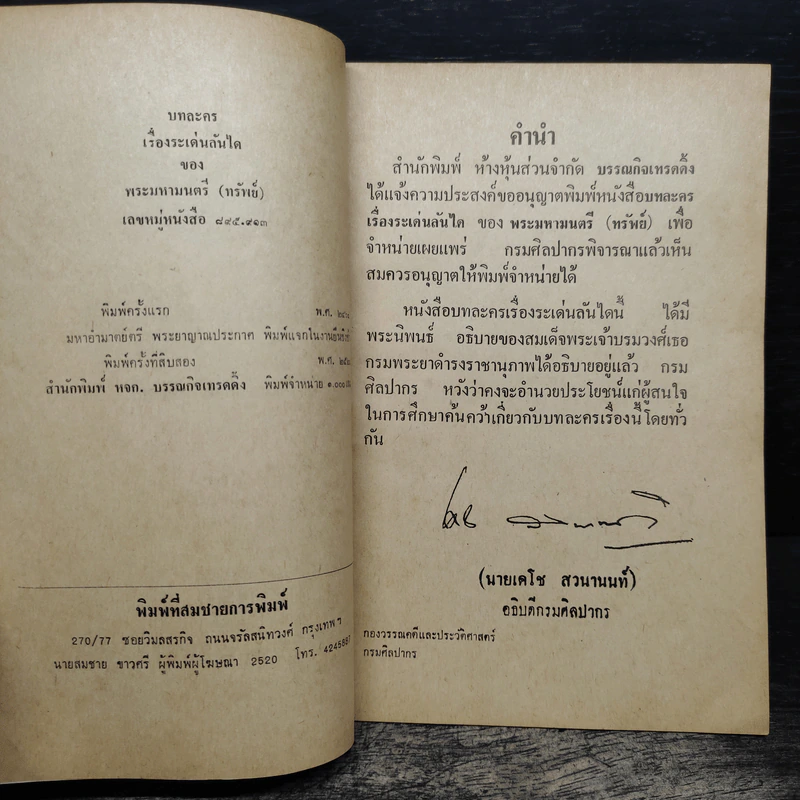 บทละคร
เรื่องระเด่นลันได
ของ
พระมหามนตรี (ทรัพย์)
เลขหมู่หนังสือ ๘๙๕.๙๑๓
พิมพ์ครั้งแรก พ.ศ.
มหาอำมาตย์ตรี พระยาญาณประกาศ พิมพ์แจกในงาน
พิมพ์ครั้งที่สิบสอง พ.ศ.
สำนักพิมพ์ หจก. บรรณกิจเทรดดิ้ง พิมพ์จำหน่าย ๑,๐๐๐
พิมพ์ที่สมชายการพิมพ์
270/77 ซอยวิมลสรกิจ ถนนจรัลสนิทวงศ์ กรุงเทพฯ
นายสมชาย ขาวศรี ผู้พิมพ์ผู้โฆษณา 2520 โทร. 4245887
คำนำ
สำนักพิมพ์ ห้างหุ้นส่วนจำกัด บรรณกิจเทรดดิ้ง
ได้แจ้งความประสงค์ขออนุญาตพิมพ์หนังสือบทละคร
เรื่องระเด่นลันได ของ พระมหามนตรี (ทรัพย์) เพื่อ
จำหน่ายเผยแพร่ กรมศิลปากรพิจารณาแล้วเห็น
สมควรอนุญาตให้พิมพ์จำหน่ายได้
หนังสือบทละครเรื่องระเด่นลันไดนี้ ได้มี
พระนิพนธ์ อธิบายของสมเด็จพระเจ้าบรมวงศ์เธอ
กรมพระยาดำรงราชานุภาพได้อธิบายอยู่แล้ว กรม
ศิลปากร หวังว่าคงจะอำนวยประโยชน์แก่ผู้สนใจ
ในการศึกษาค้นคว้าเกี่ยวกับบทละครเรื่องนี้โดยทั่ว
กัน
(นายเดโช สวนานนท์)
อธิบดีกรมศิลปากร
กองวรรณคดีและประวัติศาสตร์
กรมศิลปากร